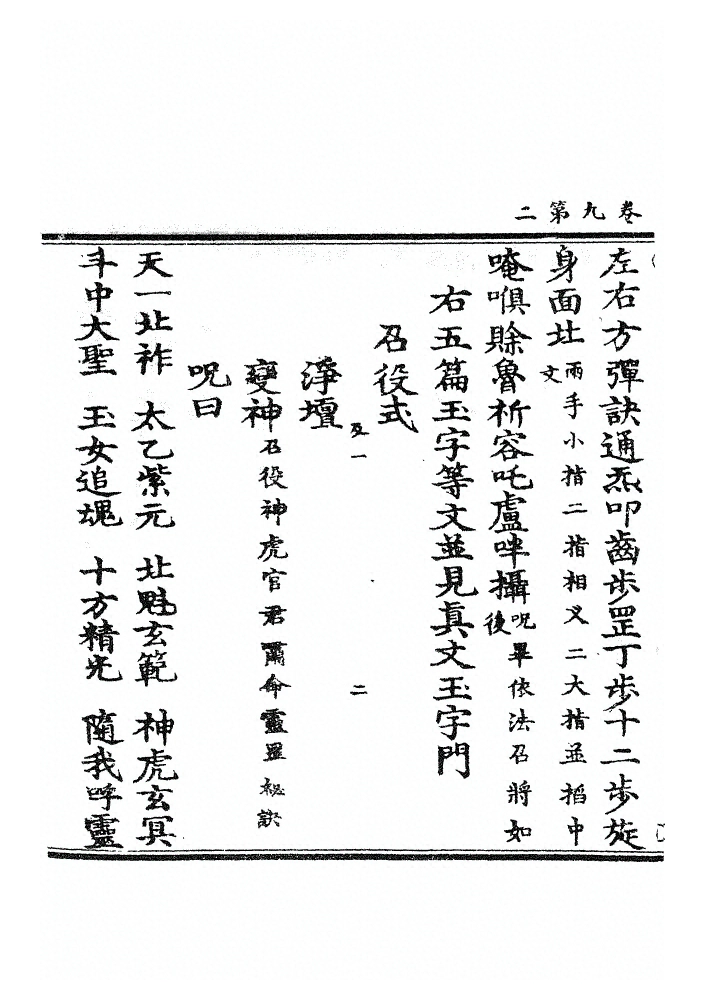 卷九第二
左右方彈訣通炁叩齒步罡丁步十二步旋
身面北兩手小指二指相叉二大指並掐中文
唵唄賖魯析容吒盧吽攝呪畢依法召將如後
右五篇玉字等文並見真文玉字門
召役式
及一 二
淨壇
變神召役神虎官君肅命靈罡祕訣
呪曰
天一北祚 太乙紫元 北魁玄範 神虎玄冥
斗中大聖 玉女追魂 十方精光 隨我呼靈